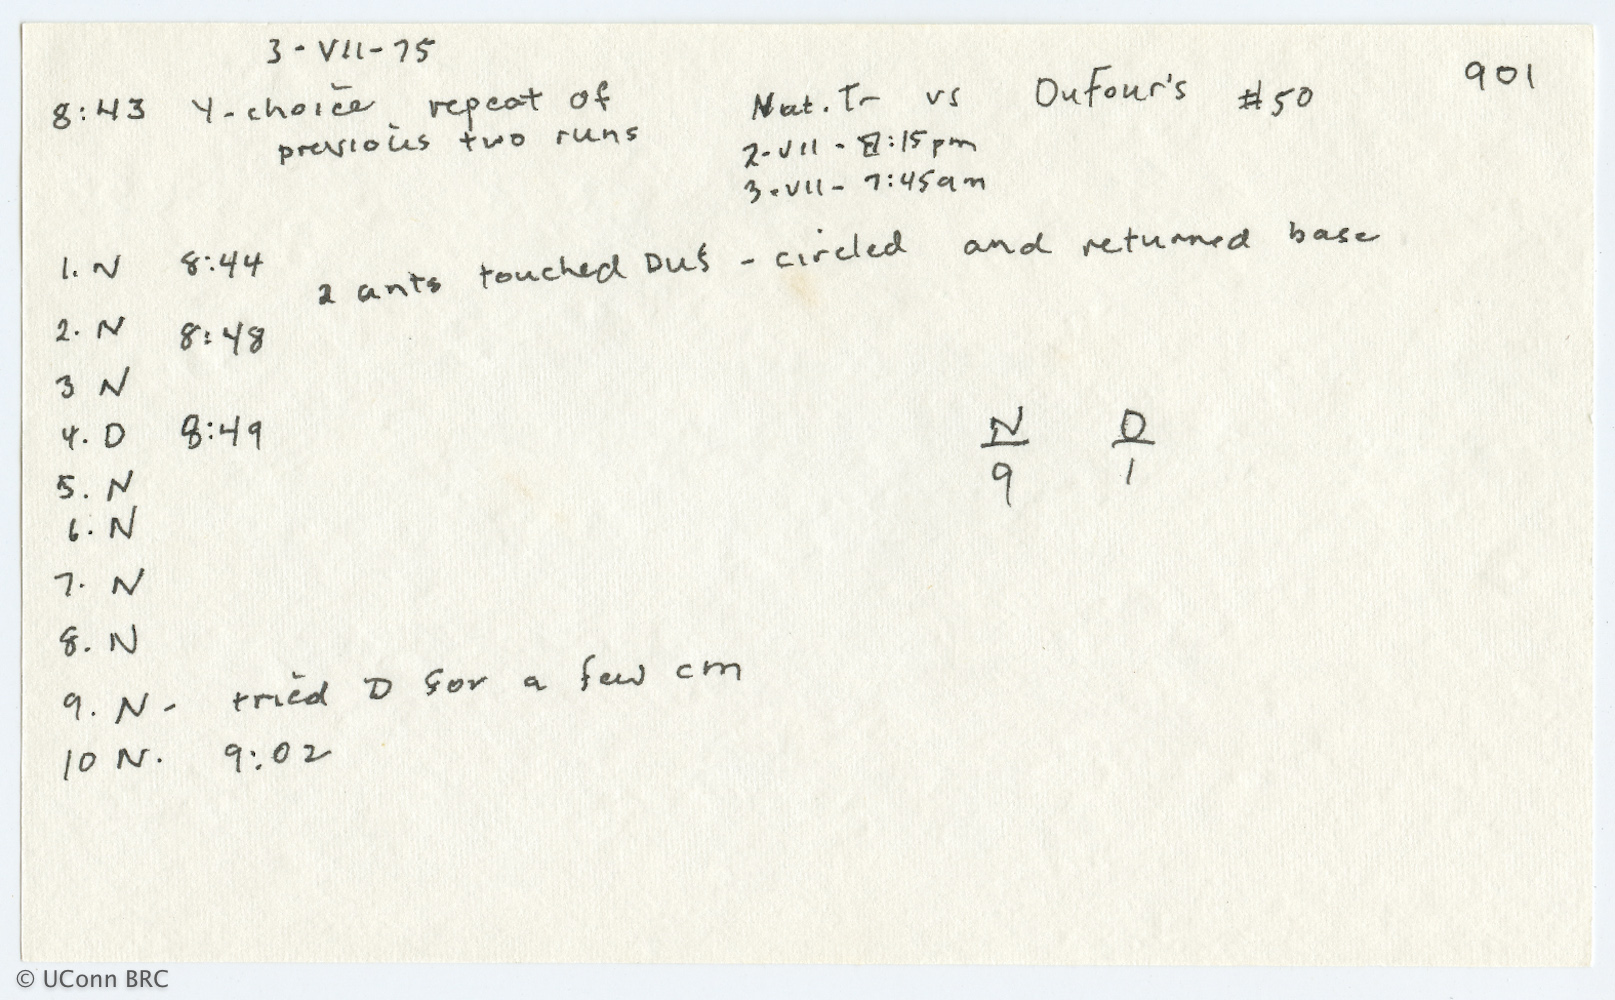 3-VII-75
901
8:43 Y-choice repeat of Nat. Tr vs Dufour's #50
previous two runs
2-VII - 8:15pm
3-VII- 7:45am
1. N 8:44 2 ants touched Duf - circled and returned base
2. N 8:48
3 N
4. D 8:49
5. N
6. N
7. N
8. N
N D
9 1
9. N - tried D for a few cm
10 N. 9:02
© UConn BRC